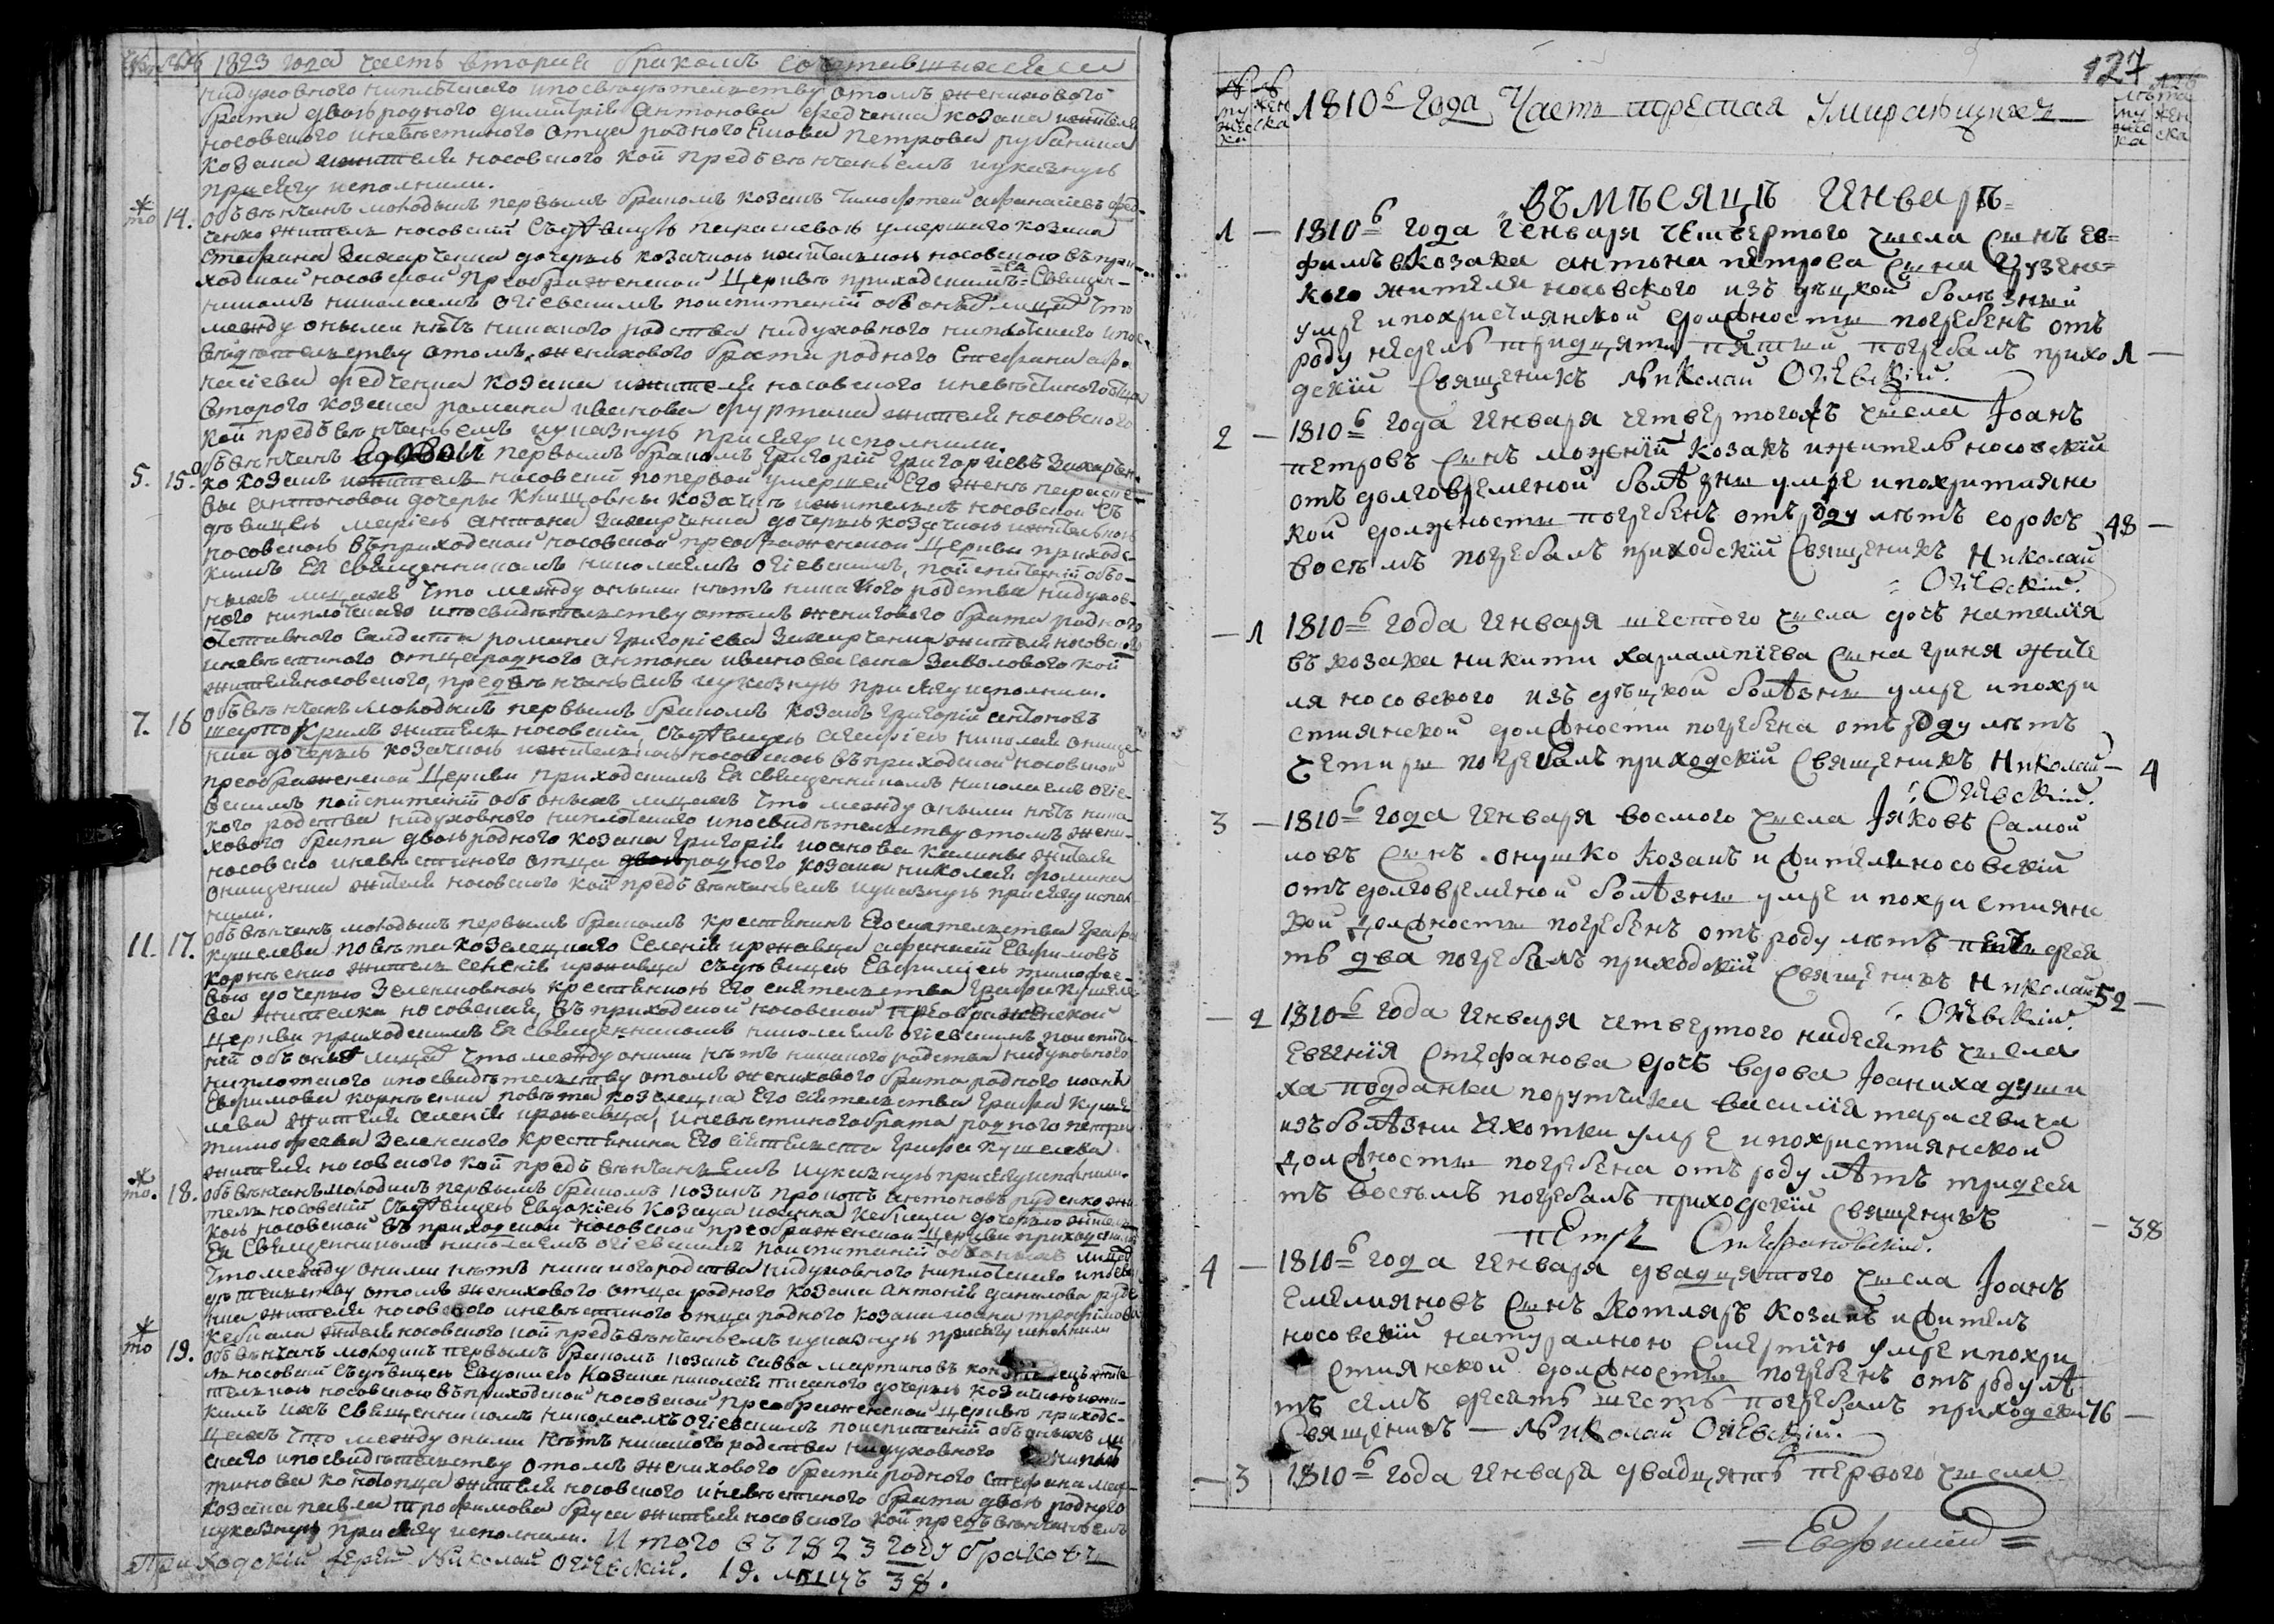 1823 года часть вторая бракомъ сочетавшихся
нидуховного ниплотского ипосвидѣтельству отомъ женихового
брата двоюродного димитрія Антонова федченка козака жителя
носовского иневѣстиного отца родного Петрова рубаника
козака жителя носовского кой предъ вѣнчаніемъ иуказную
присягу исполнили.
то 14. обвѣнчанъ молодымъ первымъ бракомъ козакъ Тимофтей афанасіевъ фед-
ченко житель носовскій съ умершего козака
Стефана Захарченка дочерью козачкою жителькою носовскою въ при-
ходской носовской преображенской Церкви приходскимъ ея Священ-
никомъ николаемъ огіевскимъ поиспитаній объ онихъ лицахъ что
между оными нѣтъ никакого родства нидуховного ниплотского ипос
видѣтельству отомъ женихового брата родного Стефана афа
насіева федченка козака жителя носовского иневѣстиного отца
второго козака романа иванова фуртата жителя носовского
кой предъ вѣнчаніемъ иуказную присягу исполнили.
5. 15. обвѣнчанъ вдовой первымъ бракомъ Григорій Григоріевъ Захарчен-
ко козакъ житель носовскій попервой умершей Его женѣ
антоновой дочери козачкѣ жителькѣ носовской съ
дѣвицею маріею антона дочерью козачкою жителькою
носовскою въ приходской носовской преображенской Церкви приходс-
кимъ Ея священникомъ николаемъ огіевскимъ, поиспитаній объо-
нихъ лицахъ что между оными нѣтъ никакого родства нидухов-
ного ниплотского ипосвидѣтельству отомъ женихового брата родного
отставного Салдата романа Григоріева Захарченка жителя носовского
иневѣстиного отца родного антона иванова сына кой
жителя носовского, предъ вѣнчаніемъ иуказную присягу исполнили.
7. 16 обвѣнчанъ молодымъ первымъ бракомъ козакъ Григорій антоновъ
житель носовскій съ дѣвицею николая онище
нка дочерью козачкою жителькою носовскою въ приходской носовской
преображенской Церкви приходскимъ Ея священникомъ николаемъ огіе-
вскимъ поиспитаній объ онихъ лицахъ что между оными нѣтъ ника
кого родства нидуховного ниплотского ипосвидѣтельству отомъ жени-
хового брата двоюродного козака Григорія иоанова калины жителя
носовского иневѣстиного отца родного козака николая фомина
онищенка жителя носовского кой предъ вѣнчаніемъ иуказную присягу испол
нили.
11. 17. обвѣнчанъ молодымъ первымъ бракомъ крестянинъ Его сиятельства Графа
кушелева повѣта козелецкого Селенія иржавца афанасій Евфимовъ
корнѣенко житель селенія иржавца съ дѣвицею Евфиміею тимофее-
вою дочерью Зеленсковною крестянкою Его сиятельства Графа кушеле
ва жителка носовскія, въ приходской носовской преображенской
Церкви приходскимъ Ея священникомъ николаемъ огіевскимъ поиспита-
ній объ онихъ лицахъ что между оними нѣтъ никакого родства нидуховного
ниплотского ипосвидѣтельству отомъ женихового брата родного иоана
Евфимова корнѣенка повѣта козелецка Его сіятельства Графа куше
лева жителя селенія иржавца, иневѣстиного брата родного петра
тимофеева Зеленского крестянина Его сіятелства Графа кушелева
жителя носовского кой предъ вѣнчаніемъ иуказную присягу исполнили.
то. 18. обвѣнчанъ молодимъ первымъ бракомъ козакъ прокопъ антоновъ руденко жи-
тель носовскій съ дѣвицею Евдокіею козака иоанна кебкала дочерью жителъ
кою носовской въ приходской носовской преображенской Церкви приходскимъ
Ея Священникомъ николаемъ огіевскимъ поиспитаній объ онихъ лицах
что между оними нѣтъ никакого родства нидуховного ниплотского ипосви
дѣтельству отомъ женихового отца родного козака антонія данилова руде
нка жителя носовского иневѣстиного отца родного козака иоана трофимова
кебкала жителя носовского кой предъ вѣнчаніемъ иуказную присягу исполнили
то 19. обвѣнчанъ молодимъ первымъ бракомъ козакъ савва мартиновъ жите
ль носовскій съ дѣвицею Евдокіею козака николая дочерью козачкою жи-
телькою носовскою въ приходской носовской преображенской Церкви приходс-
кимъ ихъ священникомъ николаемъ огіевскимъ поиспитаній объ онихъ ли
цахъ что между оними нѣтъ никакого родства нидуховного ниплот
ского ипосвидѣтельству отомъ женихового брата родного Стефана мар-
тинова конотопца жителя носовского иневѣстиного брата двоюродного
козака павла трофимова бруса жителя носовского кой предъ вѣнчаніемъ
иуказную присягу исполнили. Итого въ 1823 году браковъ
Приходскій Іерей Николай Огіевскій. 19. лицъ 38.
127
1810б Года Часть третая Умирающихъ
му жеска
жен ска
лѣта
му жес ка
жен ска
Въ мѣсяцѣ Генварѣ
1 — 1810б года Генваря четвертого числа Синъ Ев-
фимъ козака антона петрова сина
кого жителя носовского изъ дѣцкой болѣзній
умре ипохристіянской должности погребенъ отъ
роду недель тридцять пятій погребалъ прихо 1 —
дскій Священикъ Николай Огіевскій.
2 — 1810б года Генваря четвертогожъ числа Іоанъ
петровъ синъ козакъ ижитель носовскій
отъ долговременой болѣзни умре ипохритияни
кой должности погребенъ отъ роду лѣтъ сорокъ 48 —
восѣмъ погребалъ приходскій Священикъ Николай
Огіевскій.
— 1 1810б года Генваря шестого числа дочъ наталія
въ козака никити харлампіева сина гриня жите
ля носовского изъ дѣцкой болѣзни умре ипохри
стиянской должности погребена отъ роду лѣтъ
четири погребалъ приходскій Священикъ Николай — 4
Огіевскій.
3 — 1810б года Генваря восмого числа Іяковъ Самой
ловъ Синъ онушко козакъ ижителя носовскій
отъ долговременой болѣзни умре ипохристияне
кой должности погребенъ отъ роду лѣтъ пятьдеся
тъ два погребалъ приходскій Священикъ Николай 52 —
Огіевскій.
— 2 1810б года Генваря четвертого надесять числа
Евгенія Стефанова дочъ вдова Іоаниха души
ха подданка порутчика василія тарасевича
изъ болѣзни чахотки умре ипохристиянской
должности погребена отъ роду лѣтъ тридеся
тъ восѣмъ погребалъ приходскій Священикъ
Петръ Стефановскій. — 38
4 — 1810б года Генваря двадцятого числа Іоанъ
Емелияновъ синъ Котляръ козакъ ижитель
носовскій натуралною смертію умре ипохри
стиянской должности погребенъ отъ роду лѣ
тъ семъ десять шесть погребалъ приходски 76 —
Священикъ — Николай Огіевскій.
— 3 1810б года Генваря двадцять первого числа
= Евфимий =